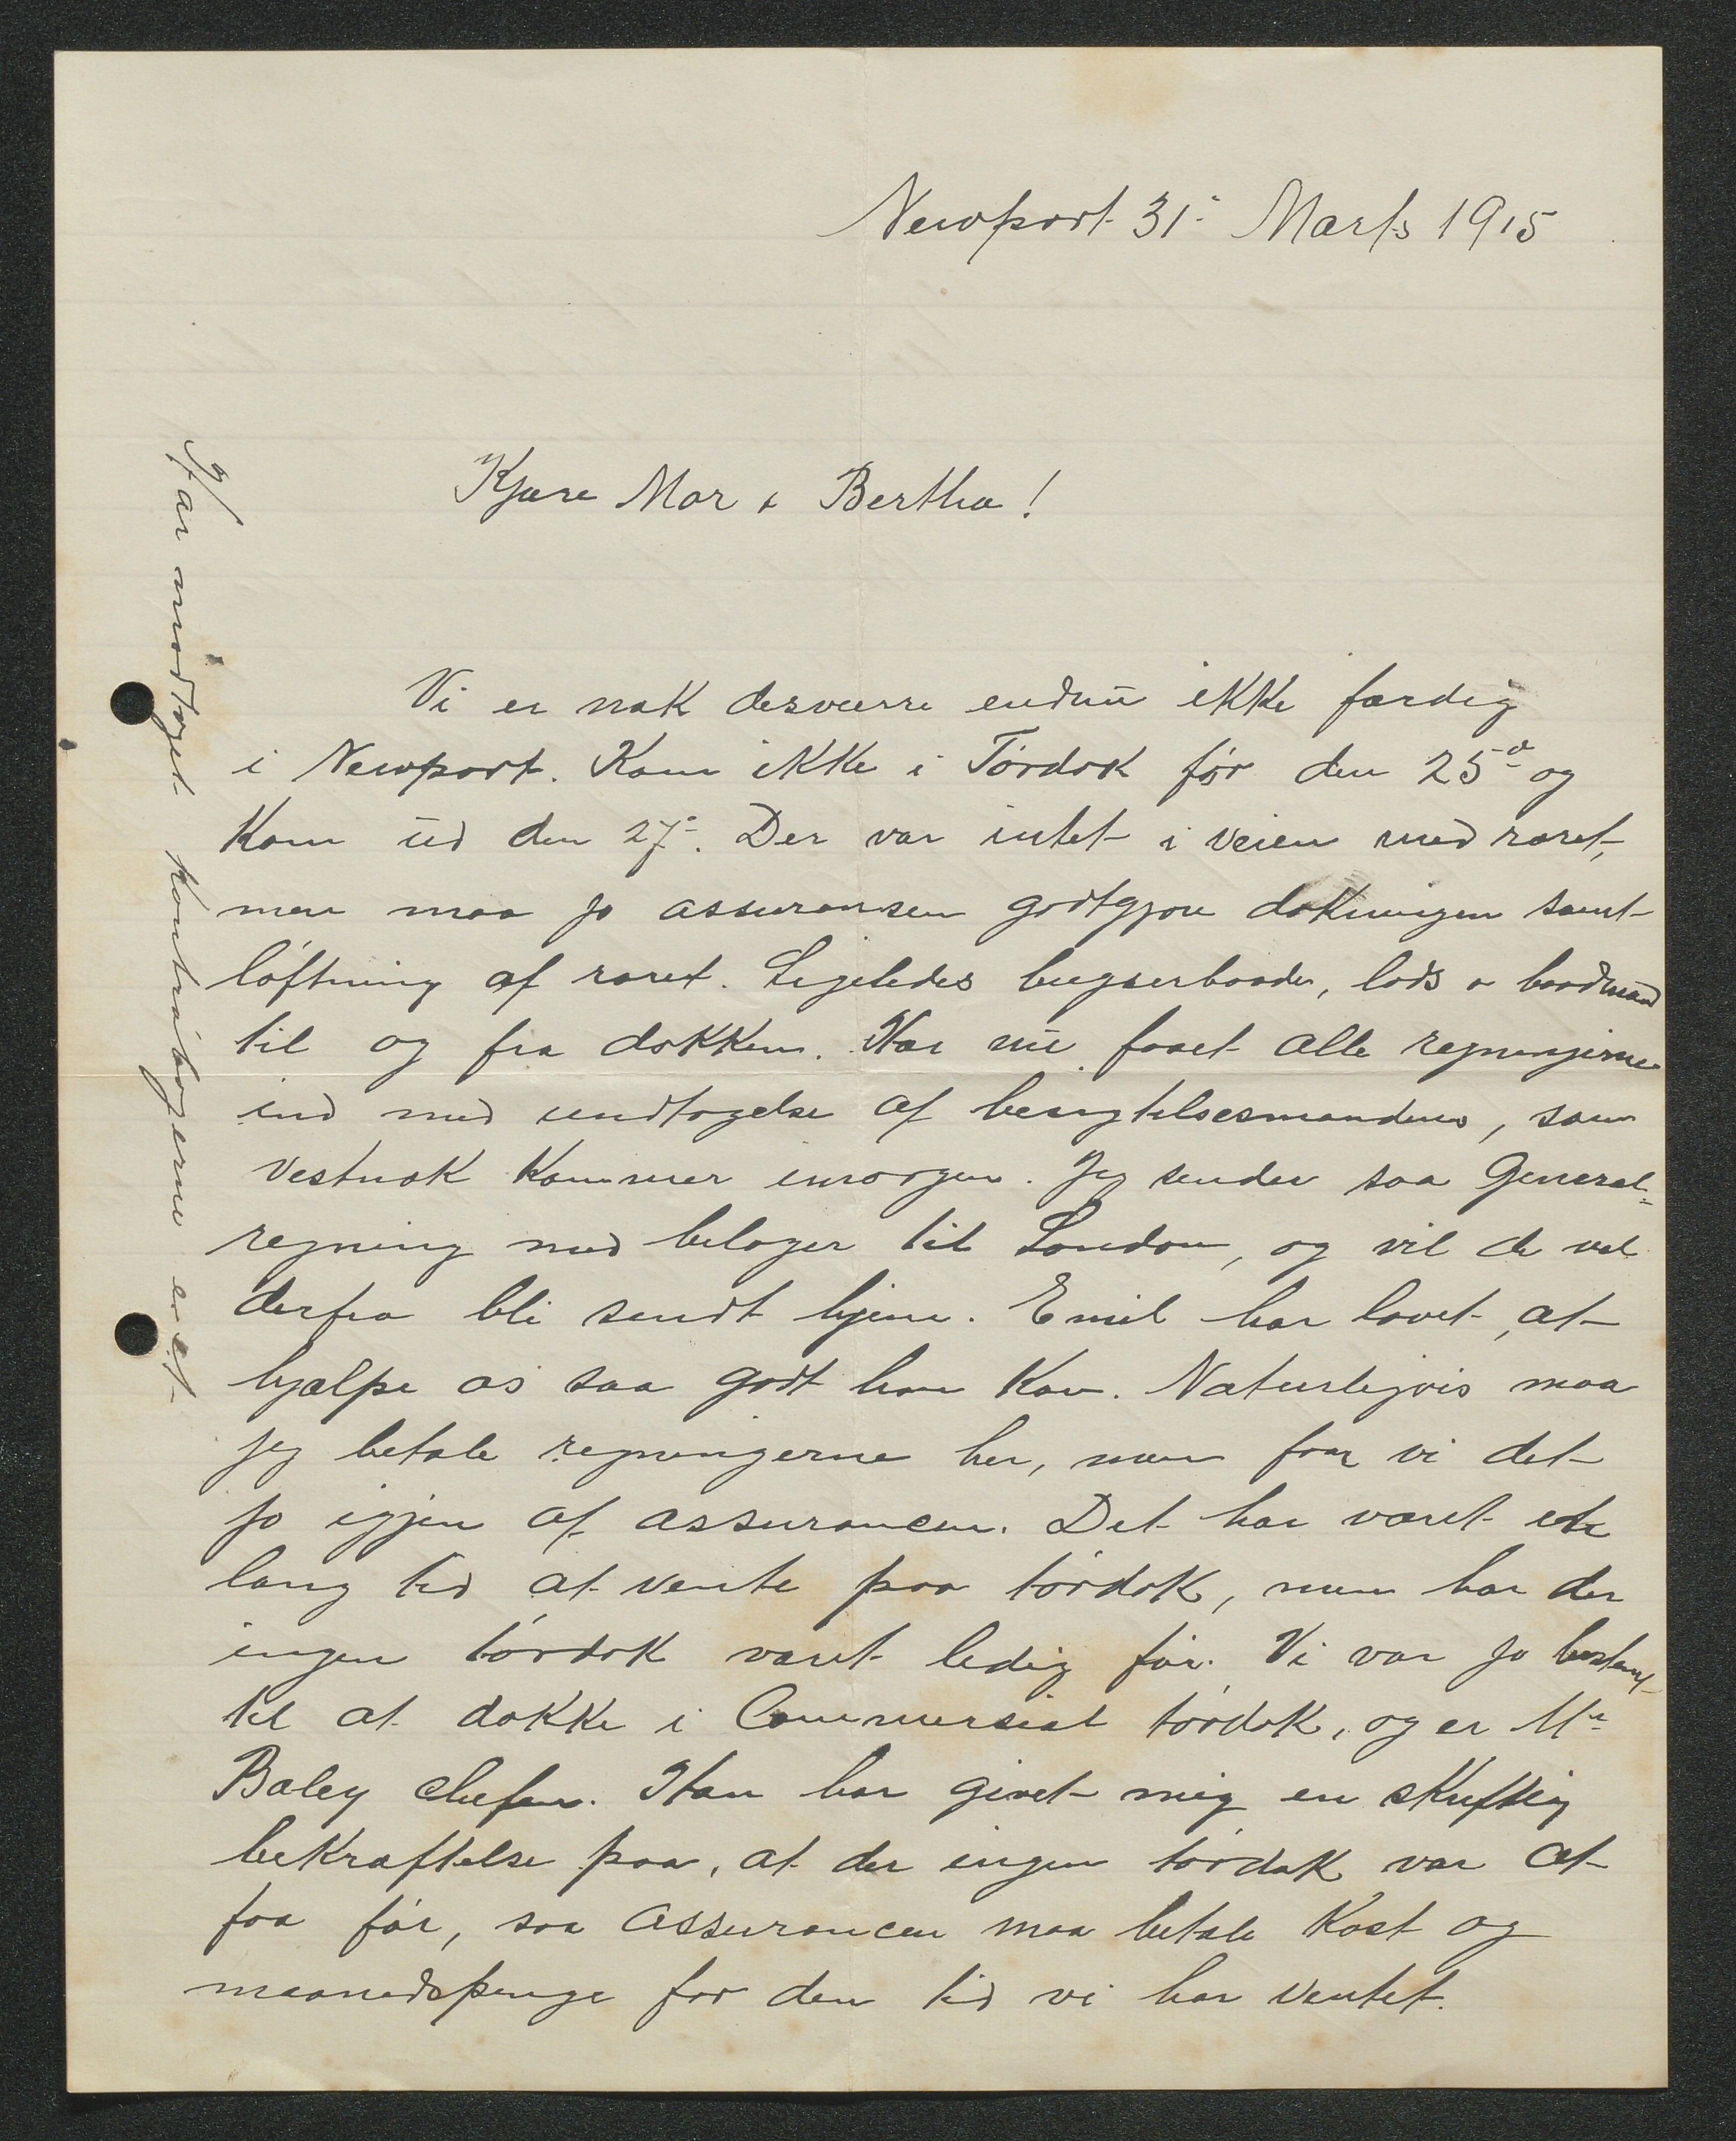 Newport 31- Marts 1915
Kjære Mor & Bertha!
Vi er nok desværre endnu ikke færdig
i Newport. Kom ikke i Tørdok før den 25de og
kom ud den 27-. Der var intet i veien med roret,
men maa jo assuransen godtgjøre dokningen samt
løftning af roret. Ligeledes bugserbaade, lods & baadmænd
til og fra dokken. Har nu faaet alle regningerne
ind med undtagelse af besigtelsesmandens, som
vestnok kommer imorgen. Jeg sender saa General=
regning med bilager til London, og vil de vel
derfra bli sendt hjem. Emil har lovet, at
hjælpe os saa godt han kan. Naturligvis maa
jeg betale regningerne her, men faar vi det
jo igjen af assurancen. Det har været
lang tid at vente paa tørdok, men har der
ingen tørdok været ledig før. Vi var jo bestemt
til at dokke i Commersial tørdok, og er Mr
Baley chefen. Han har givet mig en skriftlig
bekræftelse paa, at der ingen tørdok var at
faa før, saa assurancen maa betale kost og
maanedspenge for den tid vi har ventet.
Har modtaget kontrabøgerne